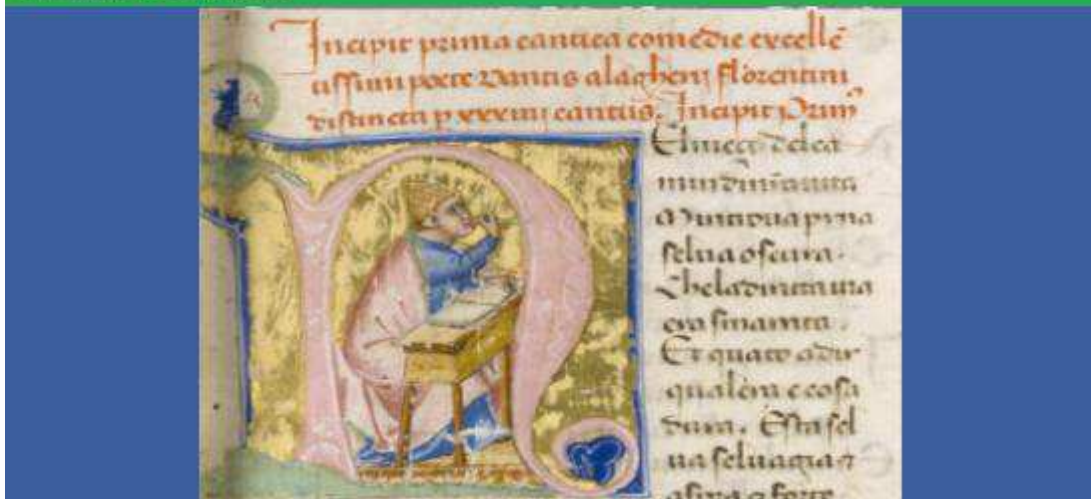 Incipit prima cantica comedie excellē
tissimi poete Dantis alagherij florentini
distincta p xxxiiij cantus. Incipit Prim⁹
El meço delca
min di nr̄a uita
Mi ritrouai p una
selua oscura.
Che la dirita uia
era smarrita.
Et quāto a dir
qual era e cosa
dura. Esta sel
ua seluagia ⁊
aspra e forte